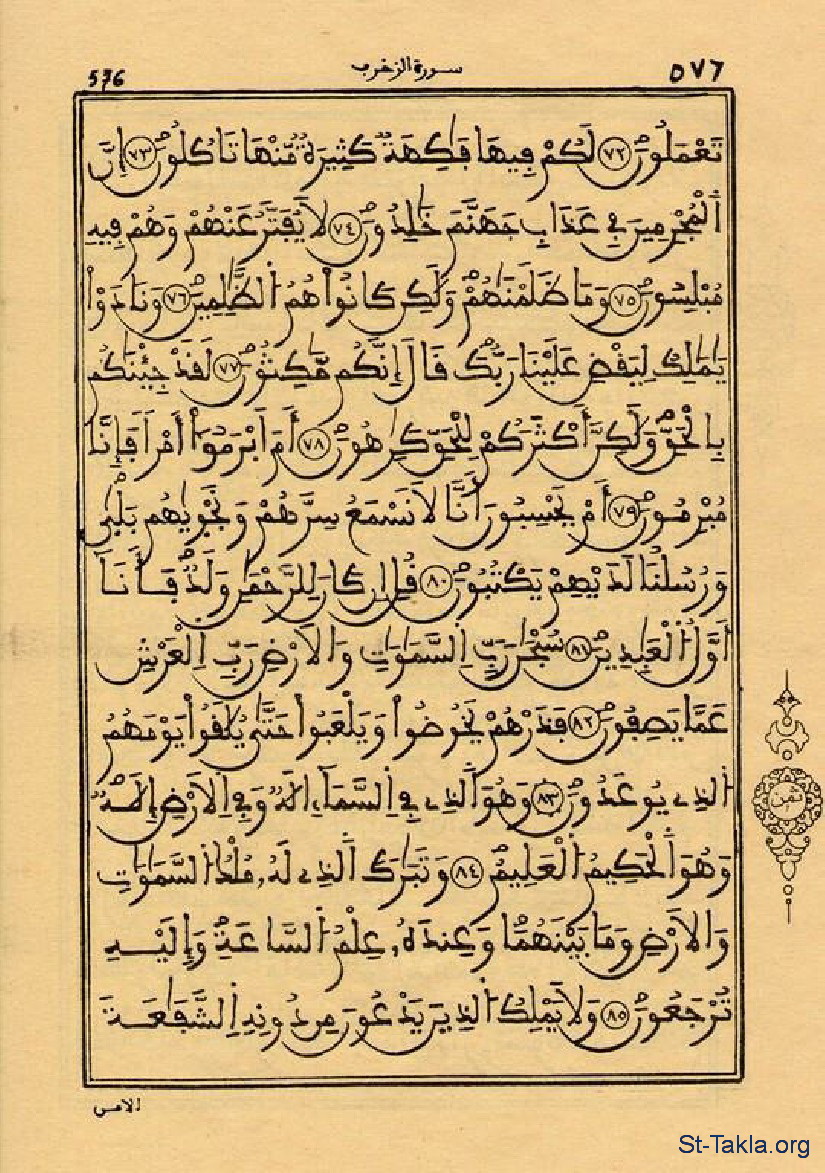 ٥٧٦ سورة الزخرف 576
تَعْمَلُونَ ٧٢ لَكُمْ فِيهَا فَٰكِهَةٌ كَثِيرَةٌ مِّنْهَا تَاكُلُونَ ٧٣ إِنَّ
اَ۬لْمُجْرِمِينَ فِے عَذَابِ جَهَنَّمَ خَٰلِدُونَ ٧٤ لَا يُفَتَّرُ عَنْهُمْ وَهُمْ فِيهِ
مُبْلِسُونَ ٧٥ وَمَا ظَلَمْنَٰهُمْ وَلَٰكِن كَانُوا۟ هُمُ اُ۬لظَّٰلِمِينَ ٧٦ وَنَادَوْا۟
يَٰمَٰلِكُ لِيَقْضِ عَلَيْنَا رَبُّكَ قَالَ إِنَّكُم مَّٰكِثُونَ ٧٧ لَقَدْ جِئْنَٰكُم
بِالْحَقِّ وَلَٰكِنَّ أَكْثَرَكُمْ لِلْحَقِّ كَٰرِهُونَ ٧٨ أَمَ اَبْرَمُوٓا۟ أَمْراً فَإِنَّا
مُبْرِمُونَ ٧٩ أَمْ يَحْسِبُونَ أَنَّا لَا نَسْمَعُ سِرَّهُمْ وَنَجْوٰىٰهُم بَلَىٰ
وَرُسُلُنَا لَدَيْهِمْ يَكْتُبُونَ ٨٠ قُلِ اِن كَانَ لِلرَّحْمَٰنِ وَلَدٌ فَأَنَآ
أَوَّلُ اُ۬لْعَٰبِدِينَ ٨١ سُبْحَٰنَ رَبِّ اِ۬لسَّمَٰوَٰتِ وَالَارْضِ رَبِّ اِ۬لْعَرْشِ
عَمَّا يَصِفُونَ ٨٢ فَذَرْهُمْ يَخُوضُوا۟ وَيَلْعَبُوا۟ حَتَّىٰ يُلَٰقُوا۟ يَوْمَهُمُ
اُ۬لذِے يُوعَدُونَ ٨٣ وَهُوَ اَ۬لذِے فِے اِ۬لسَّمَآءِ اِلَٰهٌ وَفِے اِ۬لَارْضِ إِلَٰهٌ
وَهُوَ اَ۬لْحَكِيمُ اُ۬لْعَلِيمُ ٨٤ وَتَبَٰرَكَ اَ۬لذِے لَهُۥ مُلْكُ اُ۬لسَّمَٰوَٰتِ
وَالَارْضِ وَمَا بَيْنَهُمَا وَعِندَهُۥ عِلْمُ اُ۬لسَّاعَةِ وَإِلَيْهِ
تُرْجَعُونَ ٨٥ وَلَا يَمْلِكُ اُ۬لذِينَ يَدْعُونَ مِن دُونِهِ اِ۬لشَّفَٰعَةَ
ثمن
إلا من
St-Takla.org